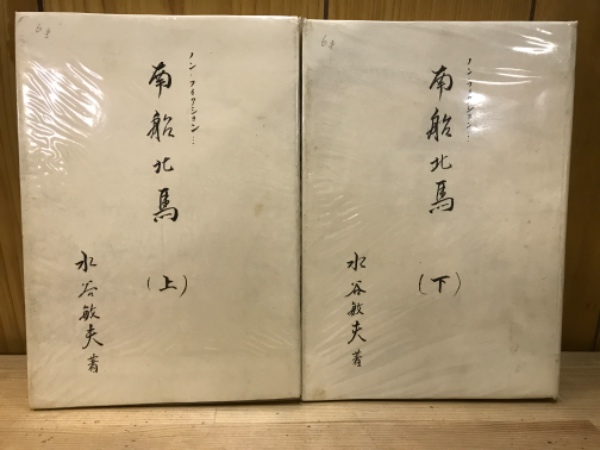 ノン・フィクション…
南船北馬
(上)
水谷敏夫著
ノン・フィクション…
南船北馬
(下)
水谷敏夫著